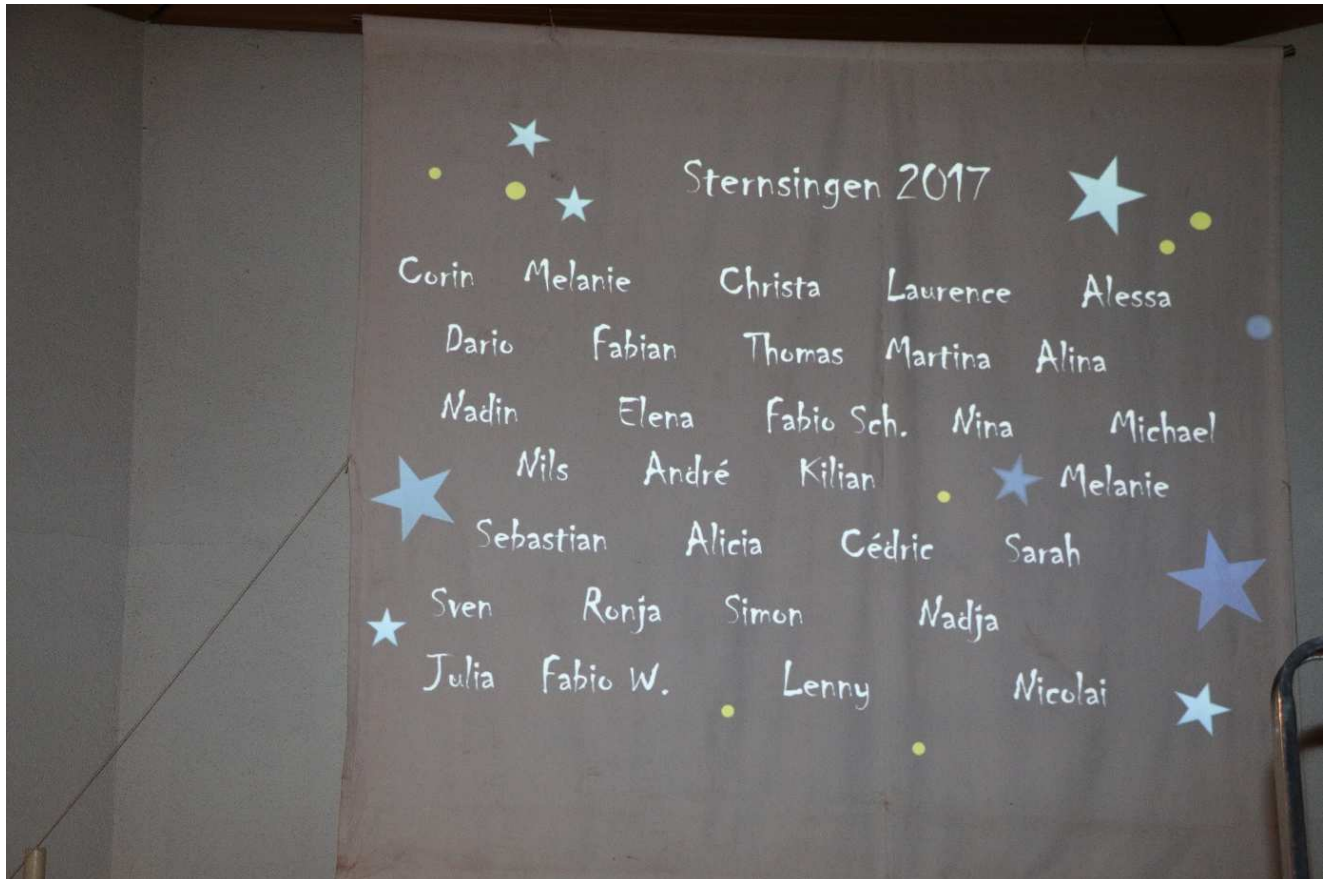 Sternsingen 2017
Corin Melanie Christa Laurence Alessa
Dario Fabian Thomas Martina Alina
Nadin Elena Fabio Sch. Nina Michael
Nils André Kilian Melanie
Sebastian Alicia Cédric Sarah
Sven Ronja Simon Nadja
Julia Fabio W. Lenny Nicolai